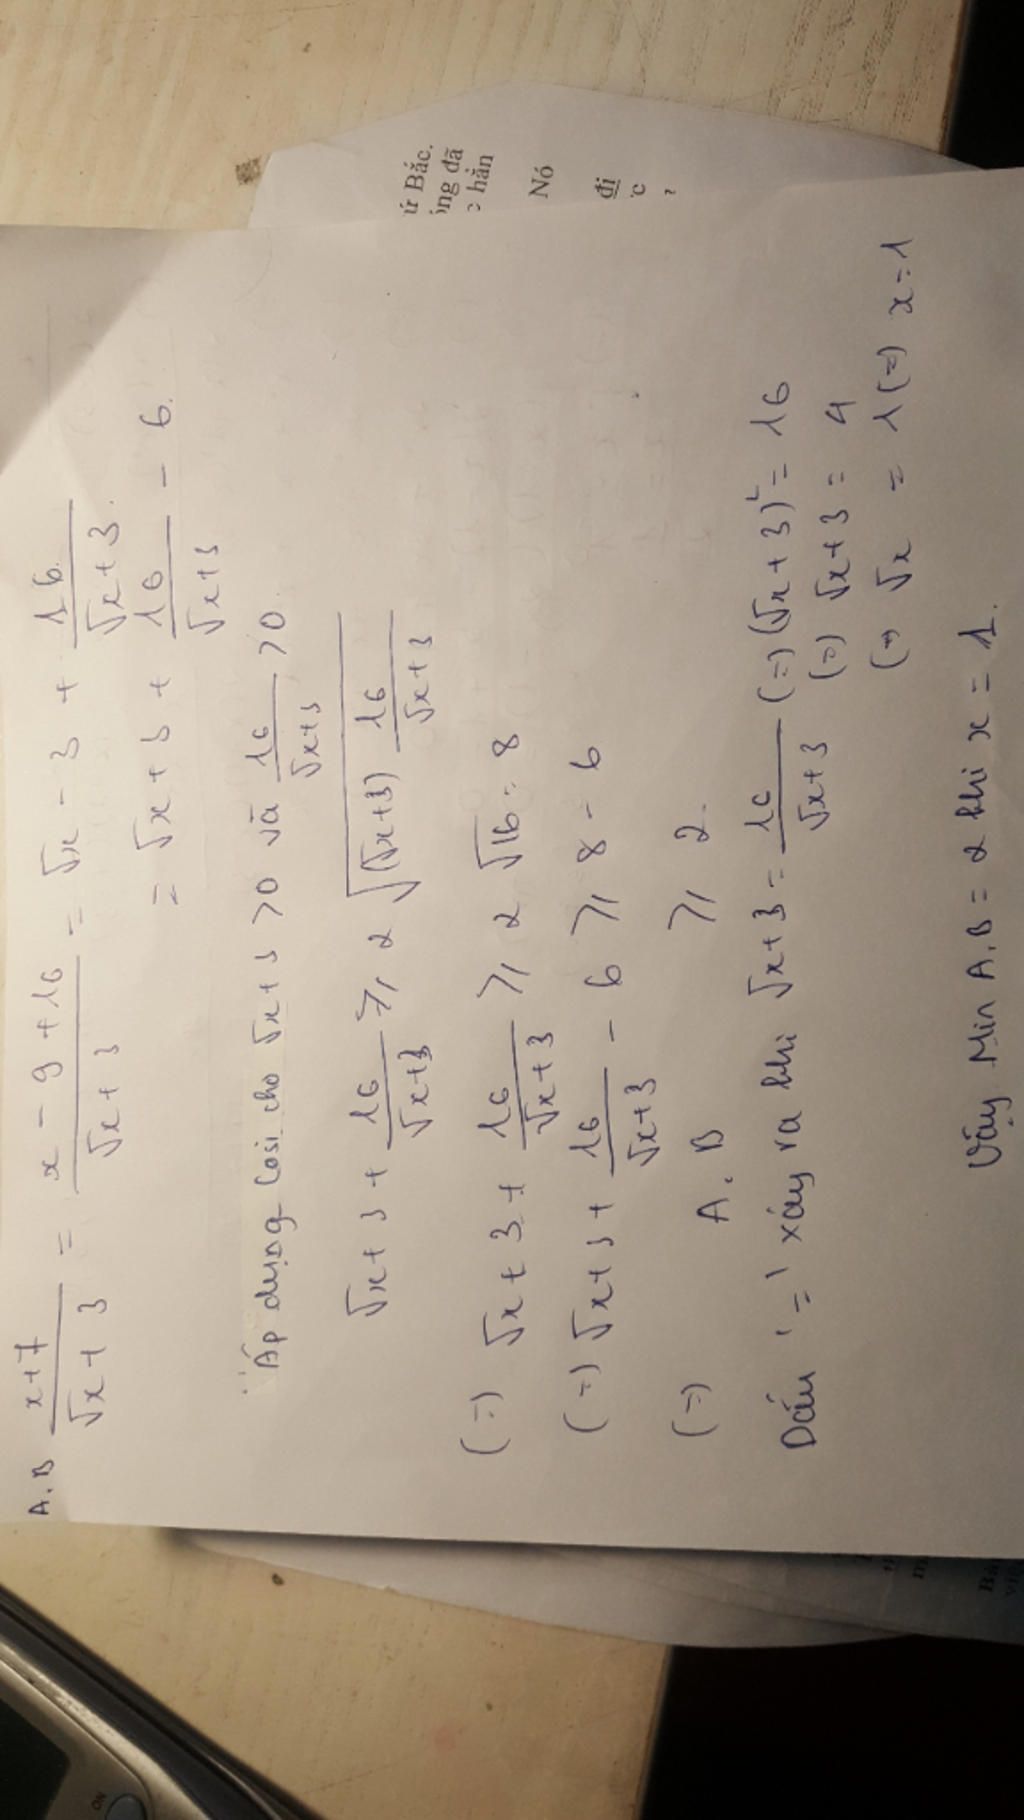 A.B x+7/√x+3 = x-9+16/√x+3 = √x-3+16/√x+3
= √x+3+16/√x+3 - 6.
Áp dụng Cosi cho √x+3 >0 và 16/√x+3 >0
√x+3+16/√x+3 ≥ 2√(√x+3)16/√x+3
(=) √x+3+16/√x+3 ≥ 2√16=8
(=) √x+3+16/√x+3 - 6 ≥ 8-6
(=) A.B ≥ 2.
Dấu '=' xảy ra khi √x+3=16/√x+3 (=) (√x+3)²=16
(=) √x+3=4
(=) √x = 1 (=) x=1
Vậy Min A.B = 2 khi x = 1.
ứ Bắc.
ông đã
hẳn
Nó
đi
ON